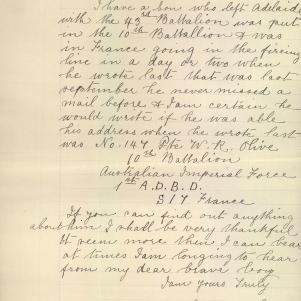 I have a Son who left Adelaide
with the 43rd Battalion was put
in the 10th Battallion & was
in France going in the fireing
line in a day or two when
he wrote last that was last
september he never missed a
mail before & I am certain he
would write if he was able
his address when he wrote last
was No. 147 Pte W. R. Olive
10th Battalion
Australian Imperial Force
1st A.D.B.D.
S17 France
If you can find out anything
about him I shall be very thankful
It seem more then I can bear
at times I am longing to hear
from my dear brave boy
I am yours Truly